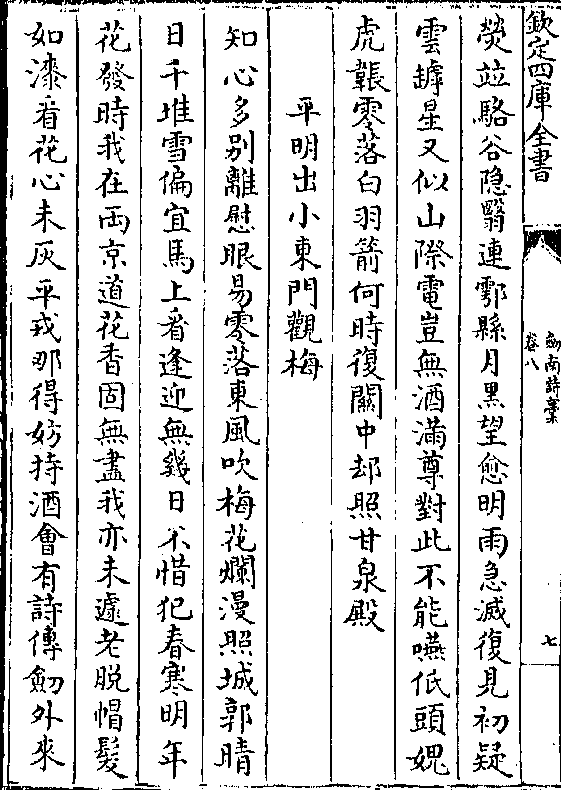 欽定四庫全書
劒南詩稾
卷八
七
熒並駱谷隐翳連鄠縣月黒望愈明雨急滅復見初疑
雲罅星又似山際電豈無酒滿尊對此不能嚥低頭媿
虎韔零落白羽箭何時復關中却照甘泉殿
平明出小東門觀梅
知心多别離慰眼易零落東風吹梅花爛漫照城郭晴
日千堆雪偏宜馬上看逢迎無幾日不惜犯春寒明年
花發時我在西京道花香固無盡我亦未遽老脱帽髮
如漆看花心未灰平戎那得妨持酒會有詩傳劒外來